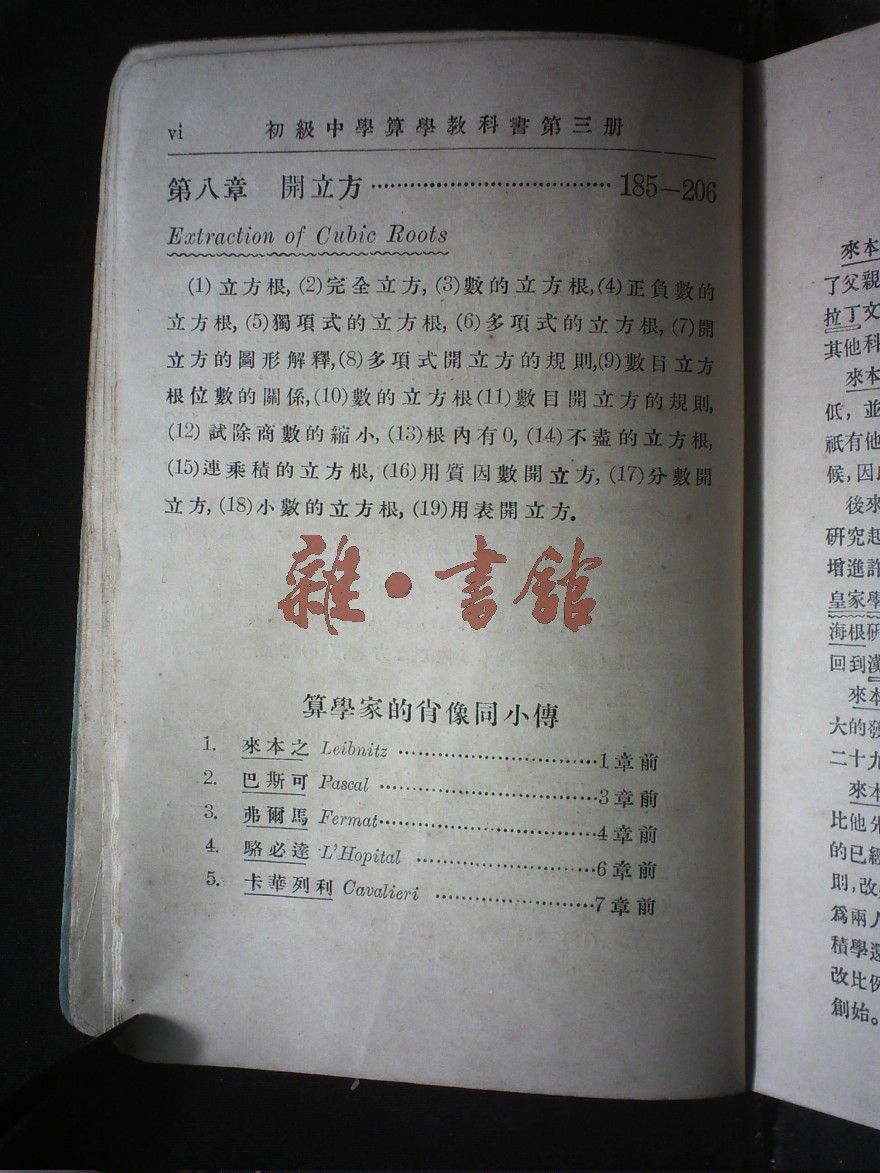 vi 初級中學算學教科書第三册
第八章 開立方 ································ 185—206
Extraction of Cubic Roots
(1) 立方根, (2)完全立方, (3)數的立方根,(4)正負數的
立方根, (5)獨項式的立方根, (6)多項式的立方根, (7)開
立方的圖形解釋,(8)多項式開立方的規則,(9)數目立方
根位數的關係,(10)數的立方根(11)數目開立方的規則,
(12) 試除商數的縮小, (13)根內有0, (14)不盡的立方根,
(15)連乘積的立方根, (16)用質因數開立方, (17)分數開
立方, (18)小數的立方根, (19)用表開立方.
雜·書舘
算學家的肖像同小傳
1. 來本之 Leibnitz ······························1章前
2. 巴斯可 Pascal ································3章前
3. 弗爾馬 Fermat································4章前
4. 駱必達 L'Hopital ··························6章前
5. 卡華列利 Cavalieri ························7章前
來本
了父親
拉丁文
其他科
來本
低, 並
祇有他
候, 因
後來
研究起
增進許
皇家學
海根研
回到漢
來本
大的發
二十九
來本
比他先
的已經
則, 改
爲兩人
積學還
改比例
創始。